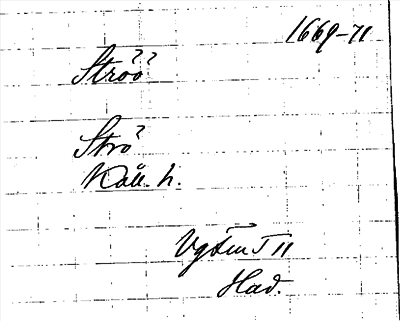 1669-71
Ströö??
Strö?
Kåll. h.
Vgtm I 11
Had.